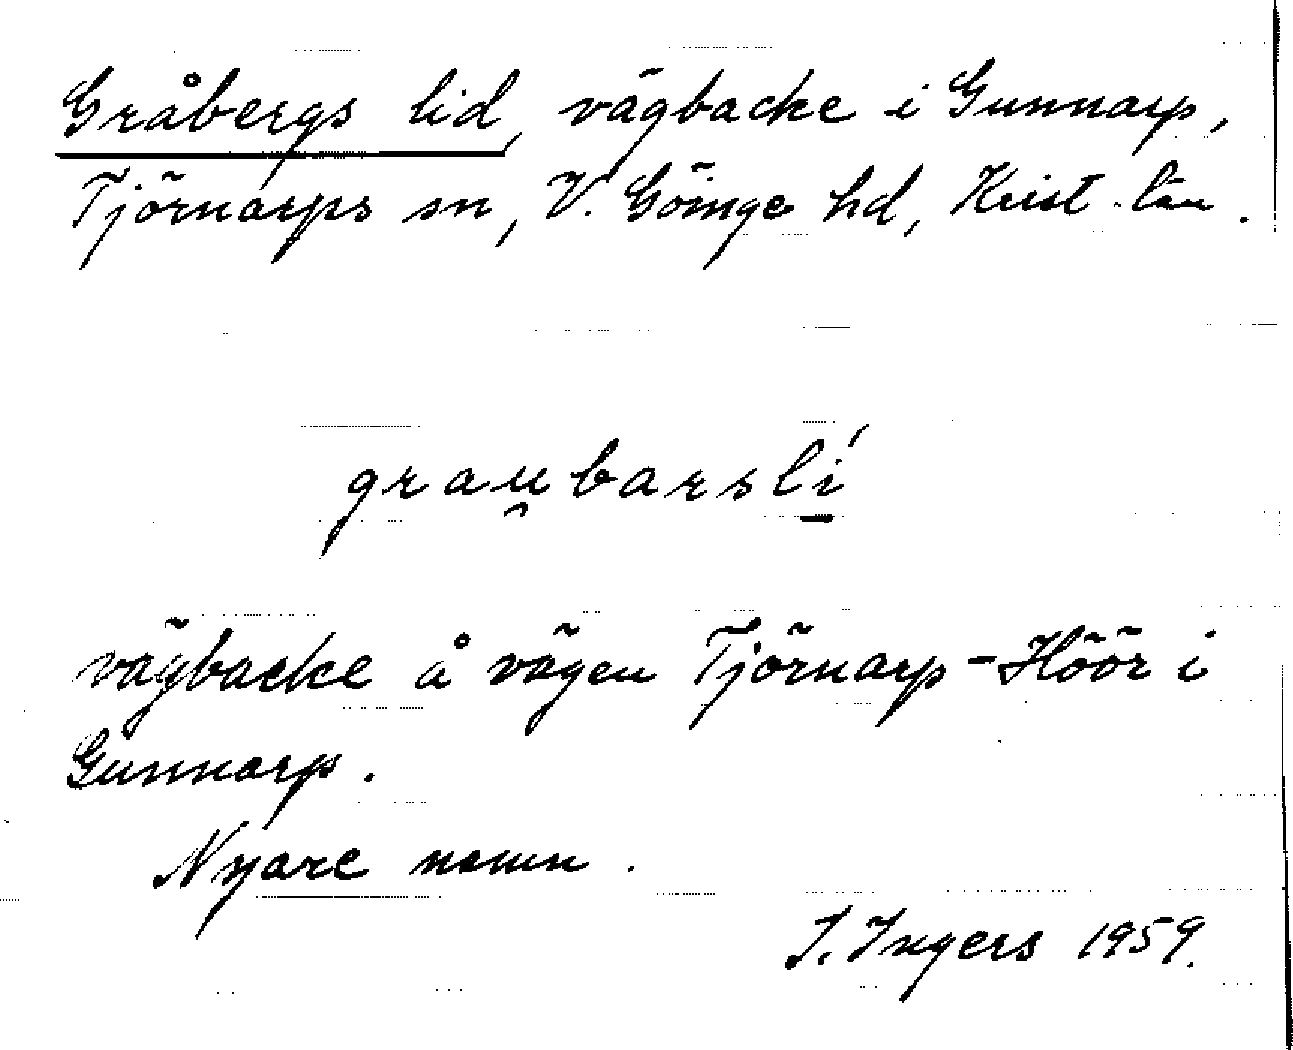 Gråbergs lid, vägbacke i Gunnarp,
Tjörnarps sn, V. Göinge hd, Krist. län.
grau̯barslí
vägbacke å vägen Tjörnarp-Höör i
Gunnarp.
Nyare namn.
I. Ingers 1959.